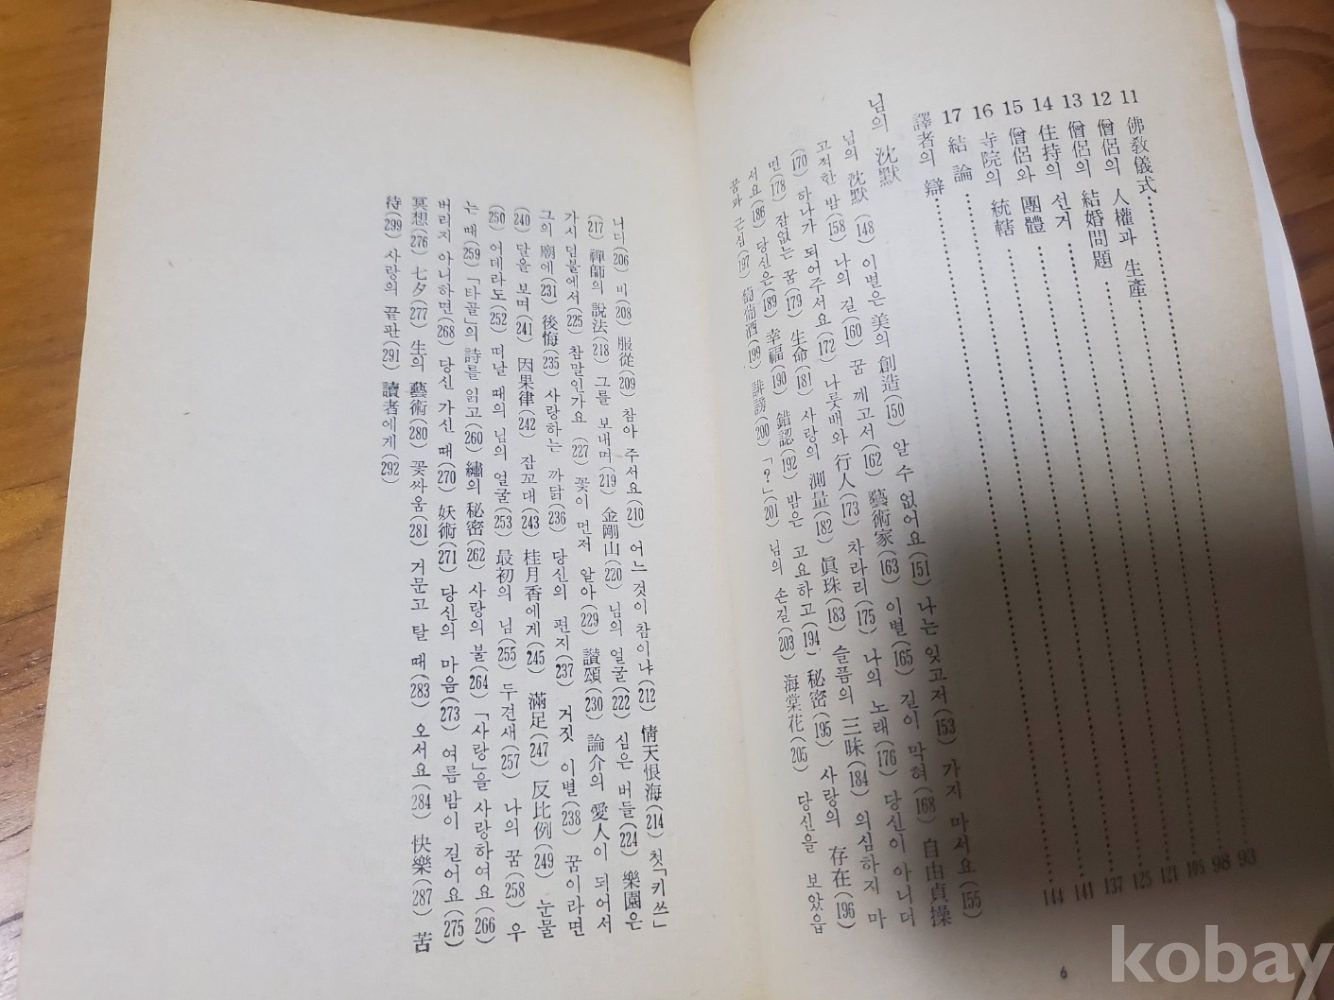 11 佛敎儀式 93
12 僧侶의 人權과 生產 98
13 僧侶의 結婚問題 105
14 住持의 선거 121
15 僧侶와 團體 125
16 寺院의 統轄 137
17 結論 141
譯者의 辯 144
님의 沈默
님의 沈默(148) 이별은 美의 創造(150) 알 수 없어요(151) 나는 잊고저(153) 가지 마서요(155)
고적한 밤(158) 나의 길(160) 꿈 깨고서(162) 藝術家(163) 이별(165) 길이 막혀(168) 自由貞操
(170) 하나가 되어주서요(172) 나룻배와 行人(173) 차라리(175) 나의 노래(176) 당신이 아니더
면(178) 잠없는 꿈(179) 生命(181) 사랑의 測量(182) 眞珠(183) 슬픔의 三昧(184) 의심하지 마
서요(186) 당신은(189) 幸福(190) 錯認(192) 밤은 고요하고(194) 秘密(195) 사랑의 存在(196)
꿈과 근심(197) 葡萄酒(199) 誹謗(200) 「?」(201) 님의 손길(203) 海棠花(205) 당신을 보았읍
6
니다(206) 비(208) 服從(209) 참아 주서요(210) 어느 것이 참이냐(212) 情天恨海(214) 첫「키쓰」
(217) 禪師의 說法(218) 그를 보내며(219) 金剛山(220) 님의 얼굴(222) 심은 버들(224) 樂園은
가시 덤불에서(225) 참말인가요(227) 꽃이 먼저 알아(229) 讃頌(230) 論介의 愛人이 되어서
그의 廟에(231) 後悔(235) 사랑하는 까닭(236) 당신의 편지(237) 거짓 이별(238) 꿈이라면
(240) 달을 보며(241) 因果律(242) 잠꼬대(243) 桂月香에게(245) 滿足(247) 反比例(249) 눈물
(250) 어데라도(252) 떠날 때의 님의 얼굴(253) 最初의 님(255) 두견새(257) 나의 꿈(258) 우
는 때(259) 「타골」의 詩를 읽고(260) 繡의 秘密(262) 사랑의 불(264) 「사랑」을 사랑하여요(266)
버리지 아니하면(268) 당신 가신 때(270) 妖術(271) 당신의 마음(273) 여름 밤이 길어요(275)
冥想(276) 七夕(277) 生의 藝術(280) 꽃싸움(281) 거문고 탈 때(283) 오서요(284) 快樂(287) 苦
待(299) 사랑의 끝판(291) 讀者에게(292)
kobay